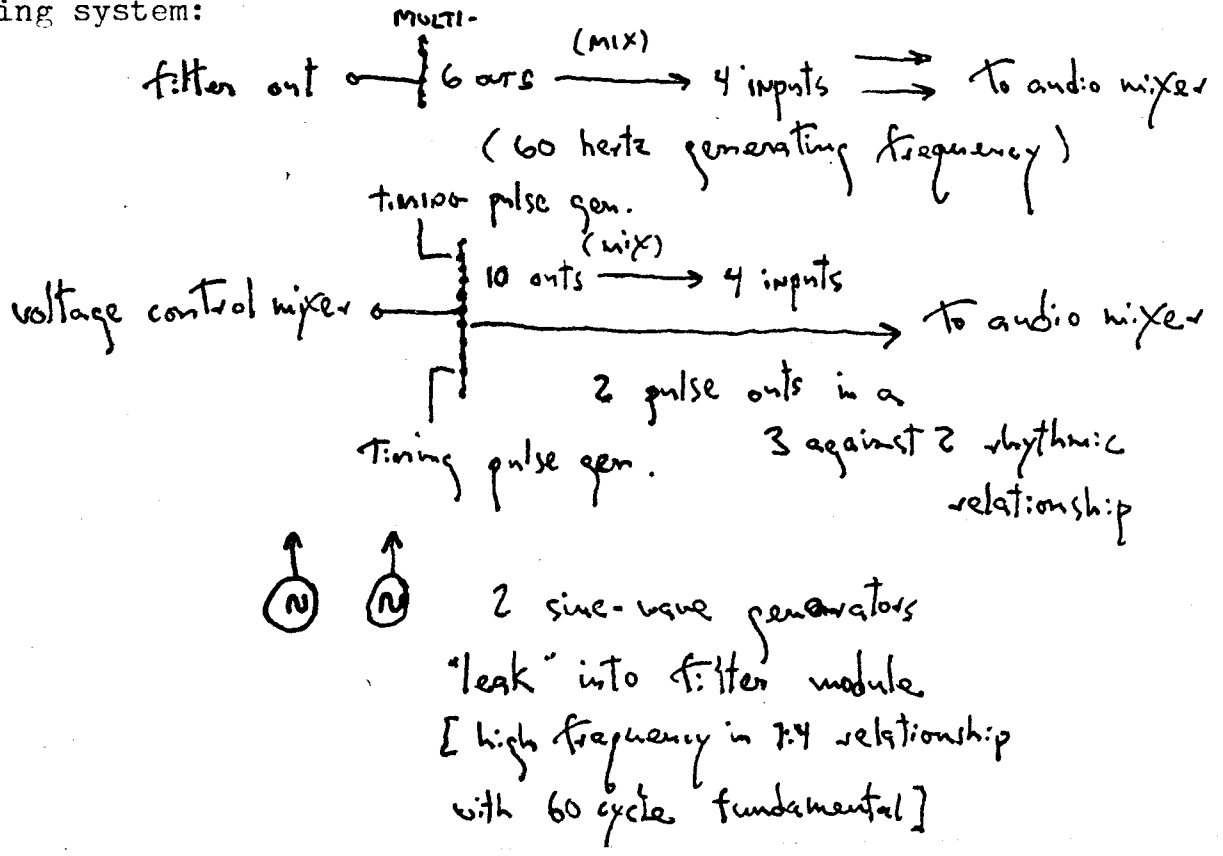 ing system:
MULTI-
filter out 6 outs (MIX) 4 inputs to audio mixer
(60 hertz generating frequency)
timing pulse gen.
(mix)
10 outs 4 inputs
voltage control mixer to audio mixer
2 pulse outs in a
3 against 2 rhythmic
relationship
Timing pulse gen.
N N
2 sine-wave generators
"leak" into filter module
[high frequency in :4 relationship
with 60 cycle fundamental]